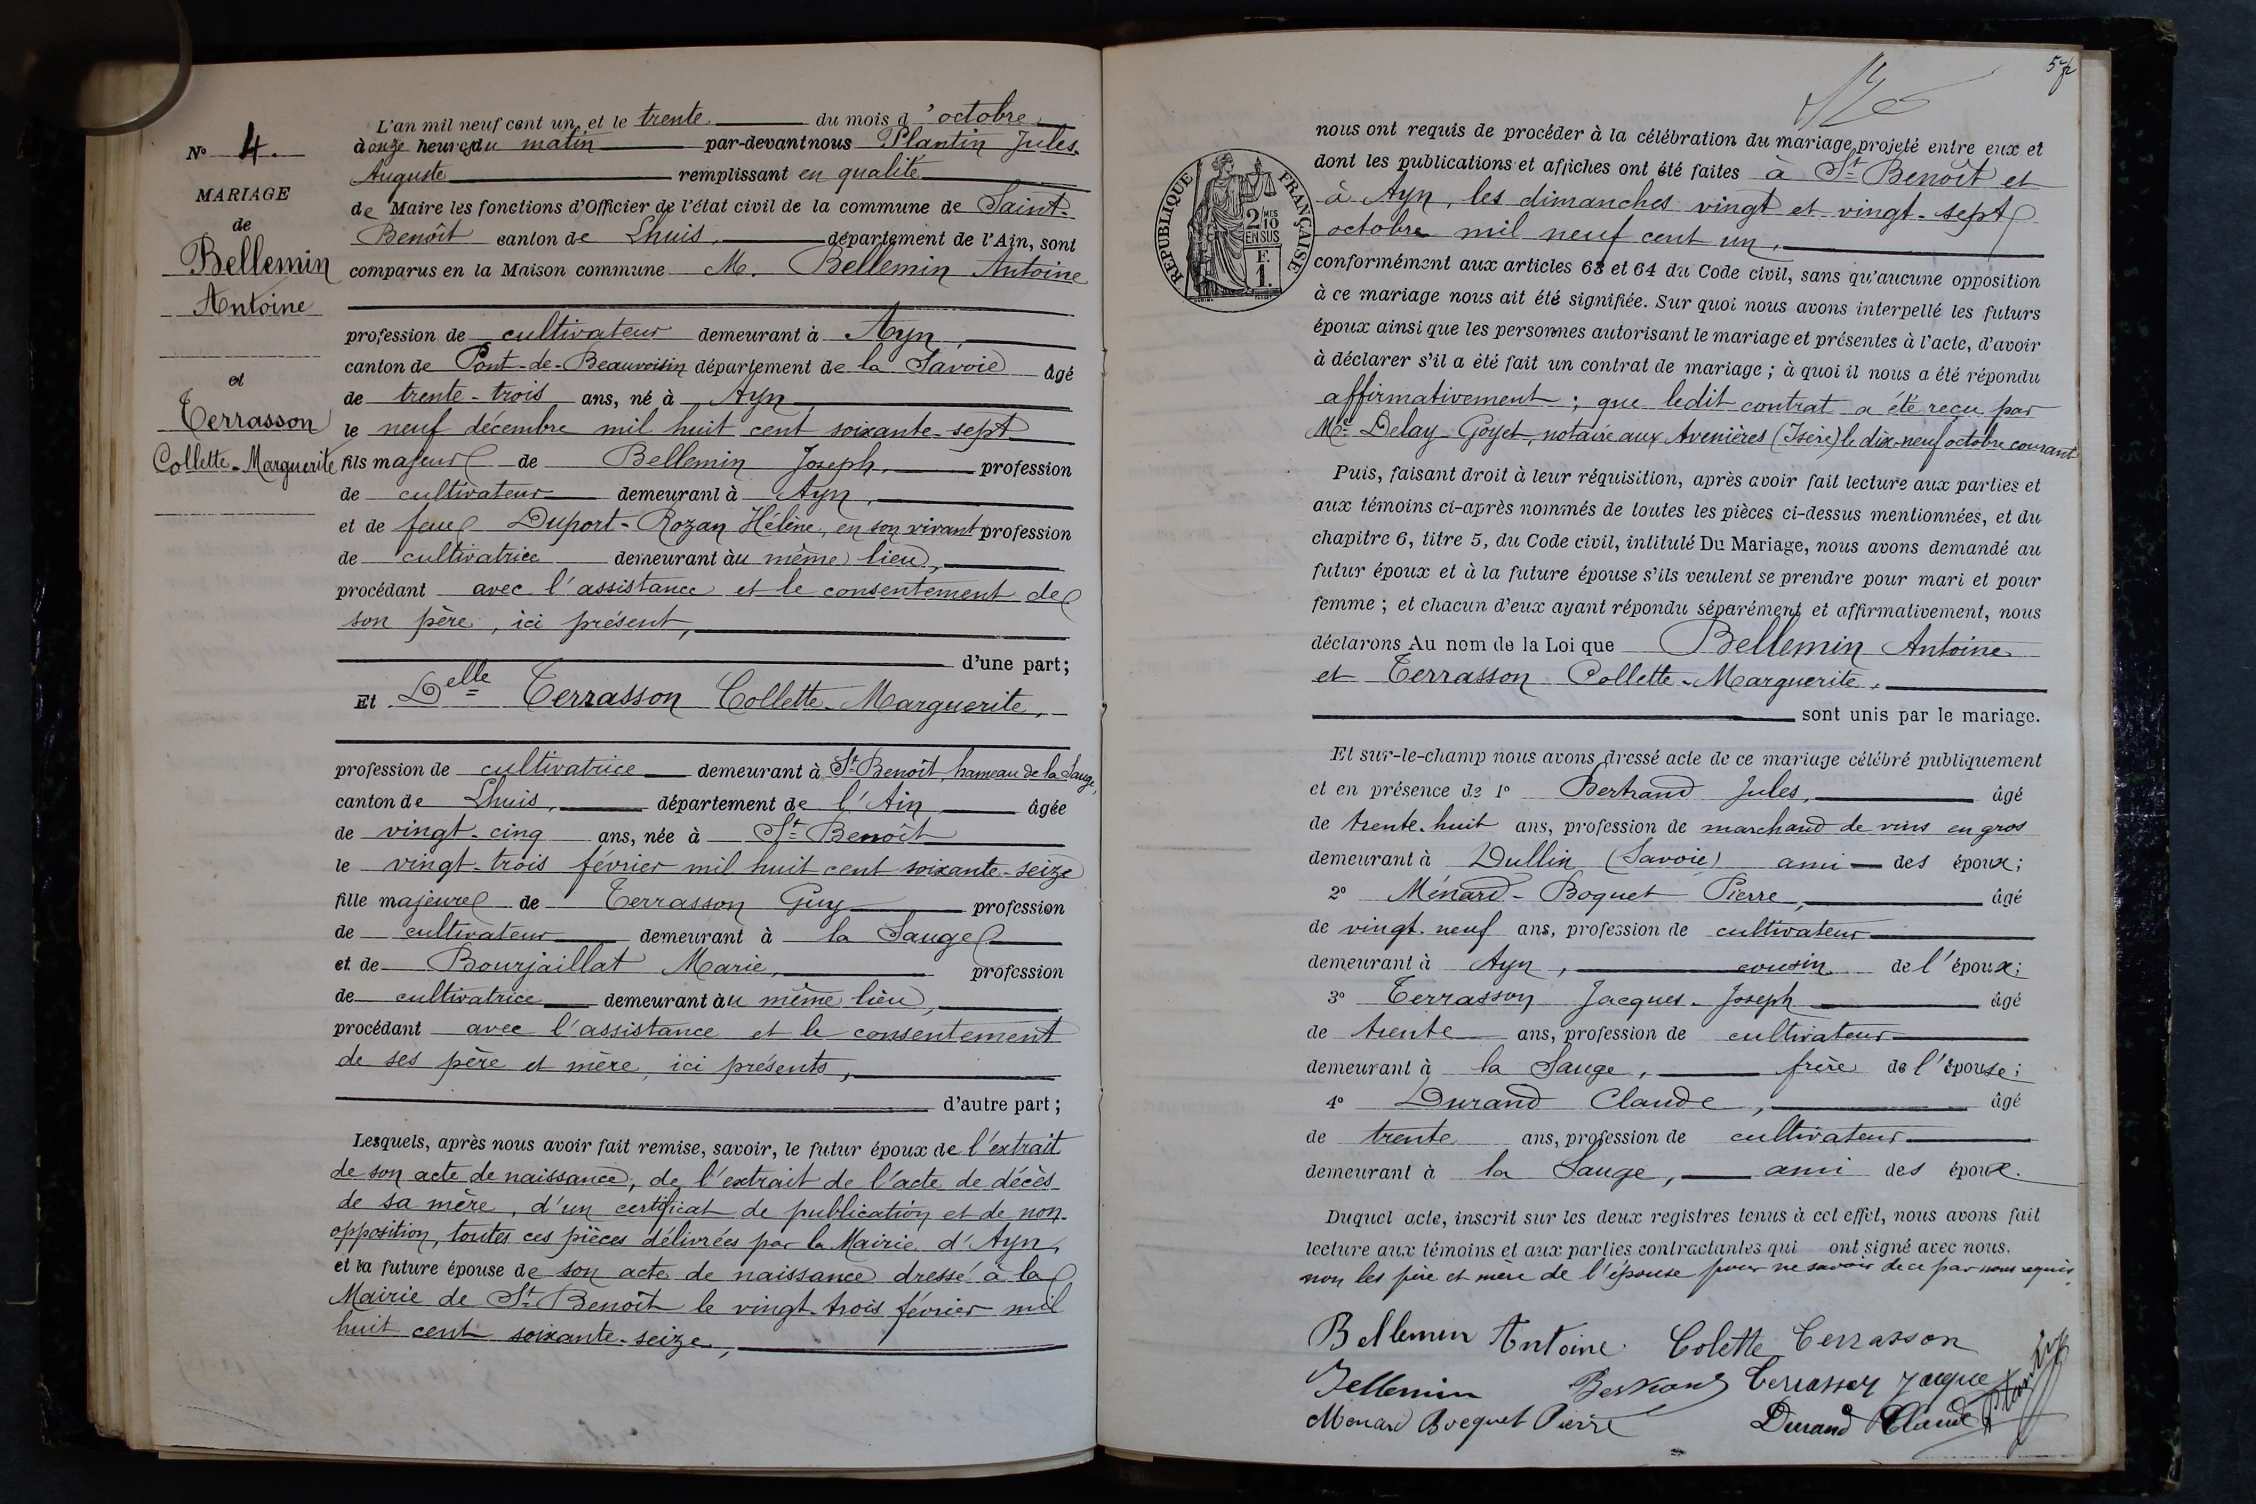 L'an mil neuf cent un et le trente du mois d'octobre,
à onze heures du matin par-devant nous Plantin Jules
Auguste remplissant en qualité
de Maire les fonctions d'Officier de l'état civil de la commune de Saint-
Benoît canton de Lhuis, département de l'Ain, sont
comparus en la Maison commune M. Bellemin Antoine
N° 4.
MARIAGE
de
Bellemin
Antoine
et
Terrasson
Collette-Marguerite
profession de cultivateur demeurant à Ayn,
canton de Pont-de-Beauvoisin département de la Savoie âgé
de trente-trois ans, né à Ayn
le neuf décembre mil huit cent soixante-sept
fils majeur de Bellemin Joseph, profession
de cultivateur demeurant à Ayn,
et de feue Duport-Rozan Hélène, en son vivant profession
de cultivatrice demeurant àu même lieu,
procédant avec l'assistance et le consentement de
son père, ici présent,
d'une part;
Et Delle Terrasson Collette-Marguerite,
profession de cultivatrice demeurant à St Benoît, hameau de la Sauge,
canton de Lhuis, département de l'Ain âgée
de vingt-cinq ans, née à St Benoît
le vingt-trois février mil huit cent soixante-seize
fille majeure de Terrasson Guy profession
de cultivateur demeurant à la Sauge
et de Bourjaillat Marie, profession
de cultivatrice demeurant àu même lieu,
procédant avec l'assistance et le consentement
de ses père et mère, ici présents,
d'autre part;
Lesquels, après nous avoir fait remise, savoir, le futur époux de l'extrait
de son acte de naissance, de l'extrait de l'acte de décès
de sa mère, d'un certificat de publication et de non-
opposition, toutes ces pièces délivrées par la Mairie d'Ayn,
et la future épouse de son acte de naissance dressé à la
Mairie de St Benoît le vingt-trois février mil
huit cent soixante-seize,
57
nous ont requis de procéder à la célébration du mariage projeté entre eux et
dont les publications et affiches ont été faites à St Benoît et
à Ayn, les dimanches vingt et vingt-sept
octobre mil neuf cent un,
RÉPUBLIQUE FRANÇAISE
2/10 MES
EN SUS
F.
1.
conformément aux articles 63 et 64 du Code civil, sans qu'aucune opposition
à ce mariage nous ait été signifiée. Sur quoi nous avons interpellé les futurs
époux ainsi que les personnes autorisant le mariage et présentes à l'acte, d'avoir
à déclarer s'il a été fait un contrat de mariage; à quoi il nous a été répondu
affirmativement; que ledit contrat a été reçu par
Me Delay-Goyet, notaire aux Avenières (Isère) le dix-neuf octobre courant
Puis, faisant droit à leur réquisition, après avoir fait lecture aux parties et
aux témoins ci-après nommés de toutes les pièces ci-dessus mentionnées, et du
chapitre 6, titre 5, du Code civil, intitulé Du Mariage, nous avons demandé au
futur époux et à la future épouse s'ils veulent se prendre pour mari et pour
femme; et chacun d'eux ayant répondu séparément et affirmativement, nous
déclarons Au nom de la Loi que Bellemin Antoine
et Terrasson Collette-Marguerite,
sont unis par le mariage.
Et sur-le-champ nous avons dressé acte de ce mariage célébré publiquement
et en présence de 1° Bertrand Jules, âgé
de trente-huit ans, profession de marchand de vins en gros
demeurant à Dullin (Savoie) ami des époux;
2° Ménard-Boquet Pierre, âgé
de vingt-neuf ans, profession de cultivateur
demeurant à Ayn, cousin de l'époux;
3° Terrasson Jacques-Joseph âgé
de trente ans, profession de cultivateur
demeurant à la Sauge, frère de l'épouse;
4° Durand Claude, âgé
de trente ans, profession de cultivateur
demeurant à la Sauge, ami des époux.
Duquel acte, inscrit sur les deux registres tenus à cet effet, nous avons fait
lecture aux témoins et aux parties contractantes qui ont signé avec nous.
non les père et mère de l'épouse pour ne savoir de ce par nous requis.
Bellemin Antoine Colette Terrasson
Bellemin Bertrand Terrasson Jacque Plantin
Menard Bocquet Pierre Durand Claude